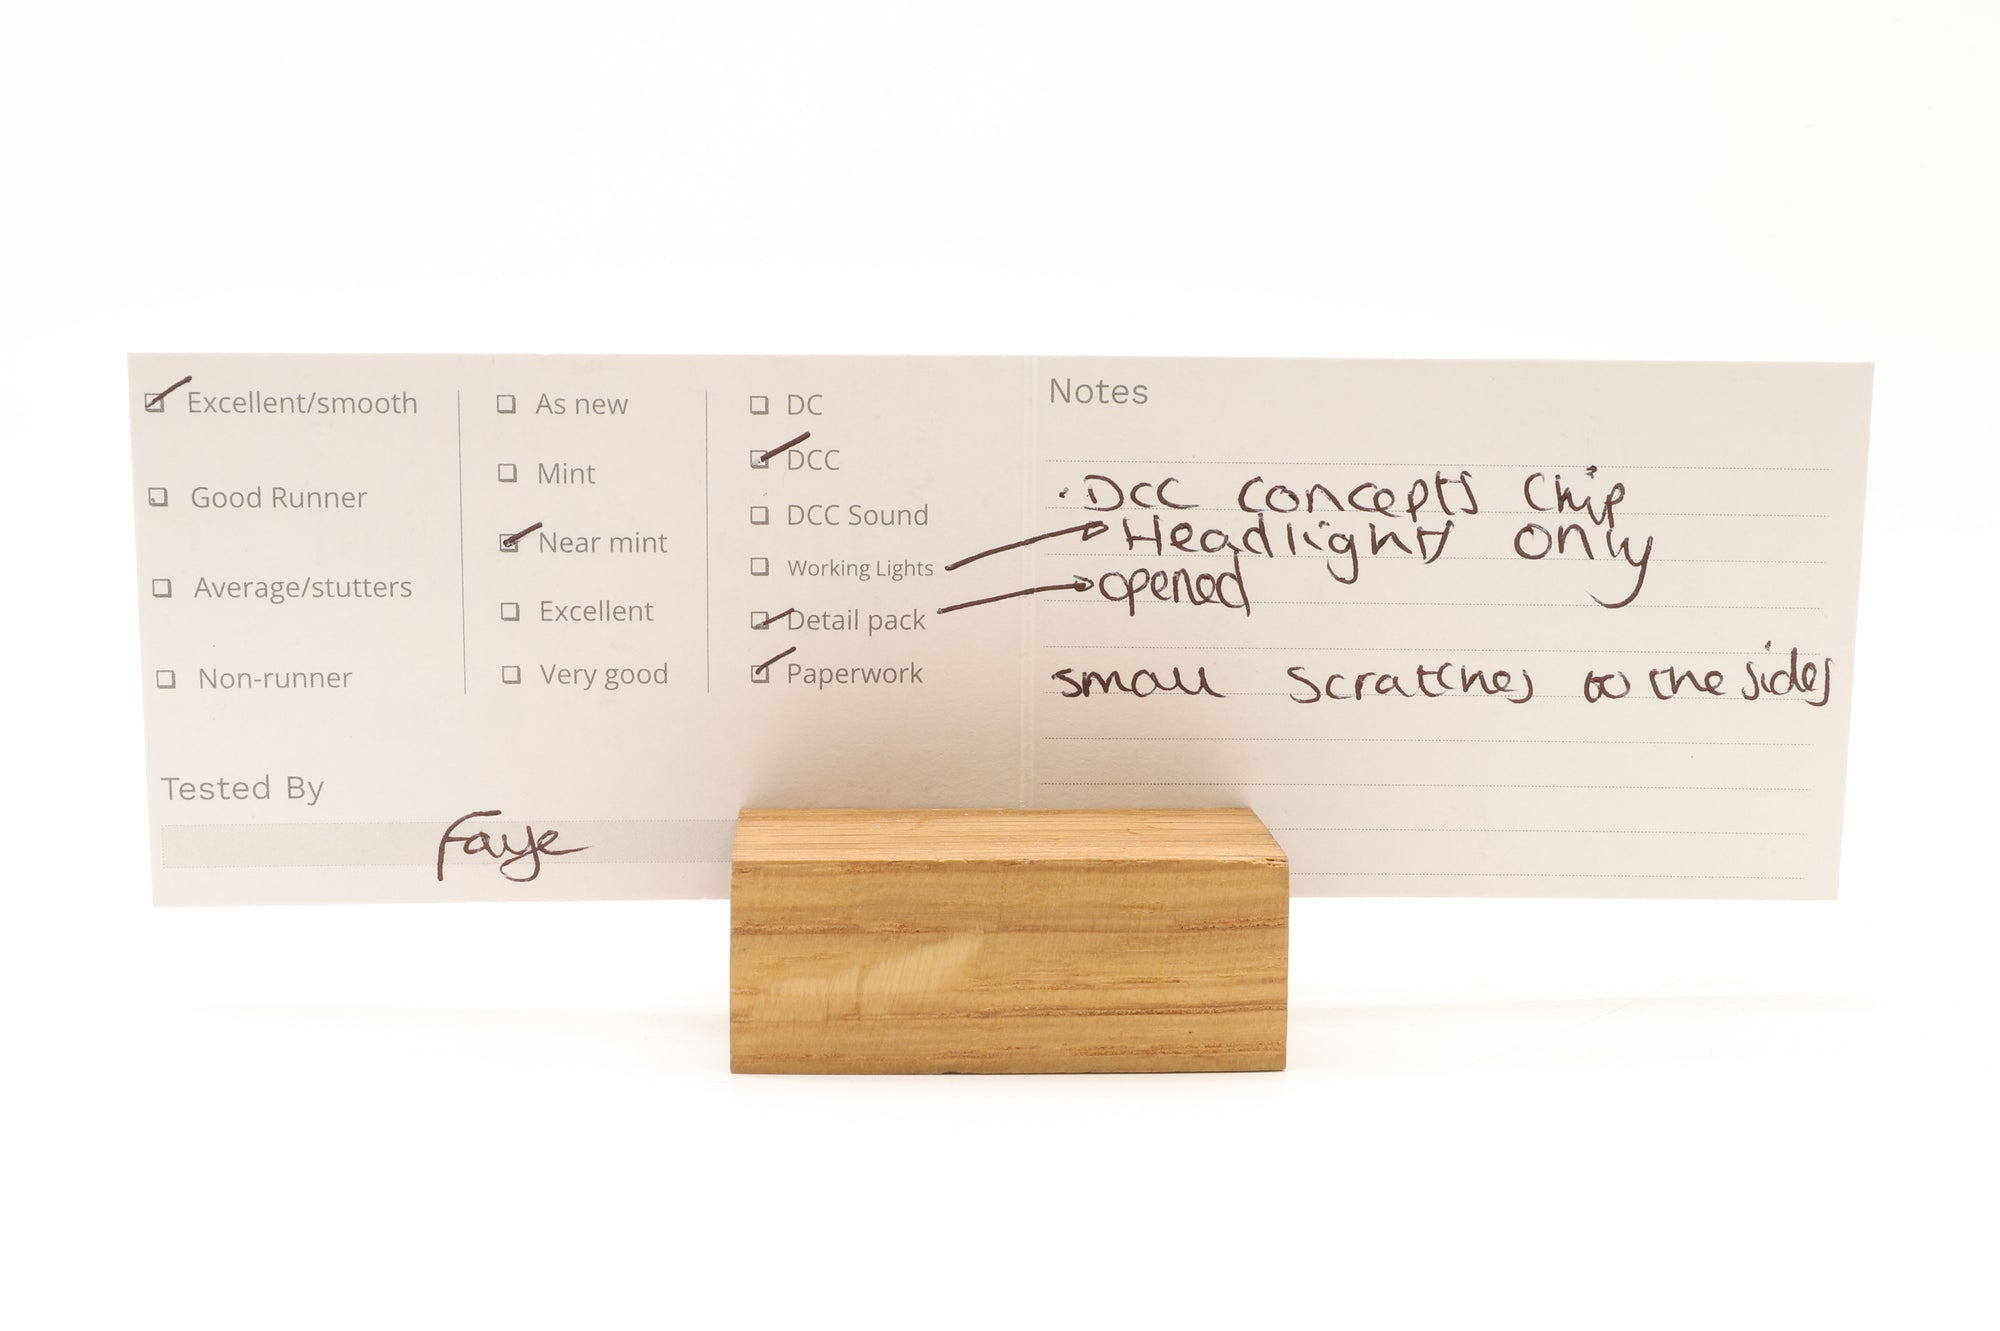 Excellent/smooth
Good Runner
Average/stutters
Non-runner
As new
Mint
Near mint
Excellent
Very good
DC
DCC
DCC Sound
Working Lights
Detail pack
Paperwork
Tested By
Faye
Notes
· DCC concepts Chip
Headlight only
opened
small scratches to the sides